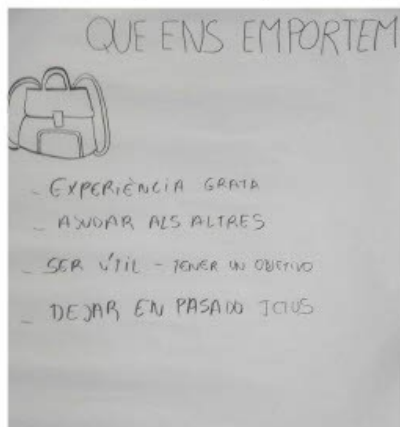 QUE ENS EMPORTEM
- EXPERIÈNCIA GRATA
- AJUDAR ALS ALTRES
- SER ÚTIL - TENER UN OBJETIVO
- DEJAR EN PASADO ICTUS